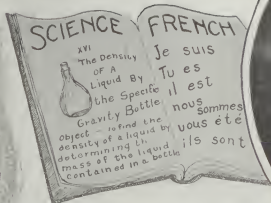 SCIENCE
XVI
The Density
OF A
Liquid By
the Specific
Gravity Bottle
Object - to find the
density of a liquid by
determining th
mass of the liquid
contained in a bottle
FRENCH
Je suis
Tu es
il est
nous
sommes
vous été
ils sont